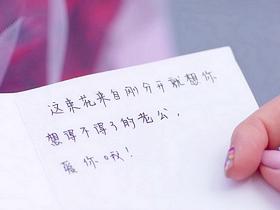 这束花来自刚分开就想你
想得不得了的老公，
爱你哦！